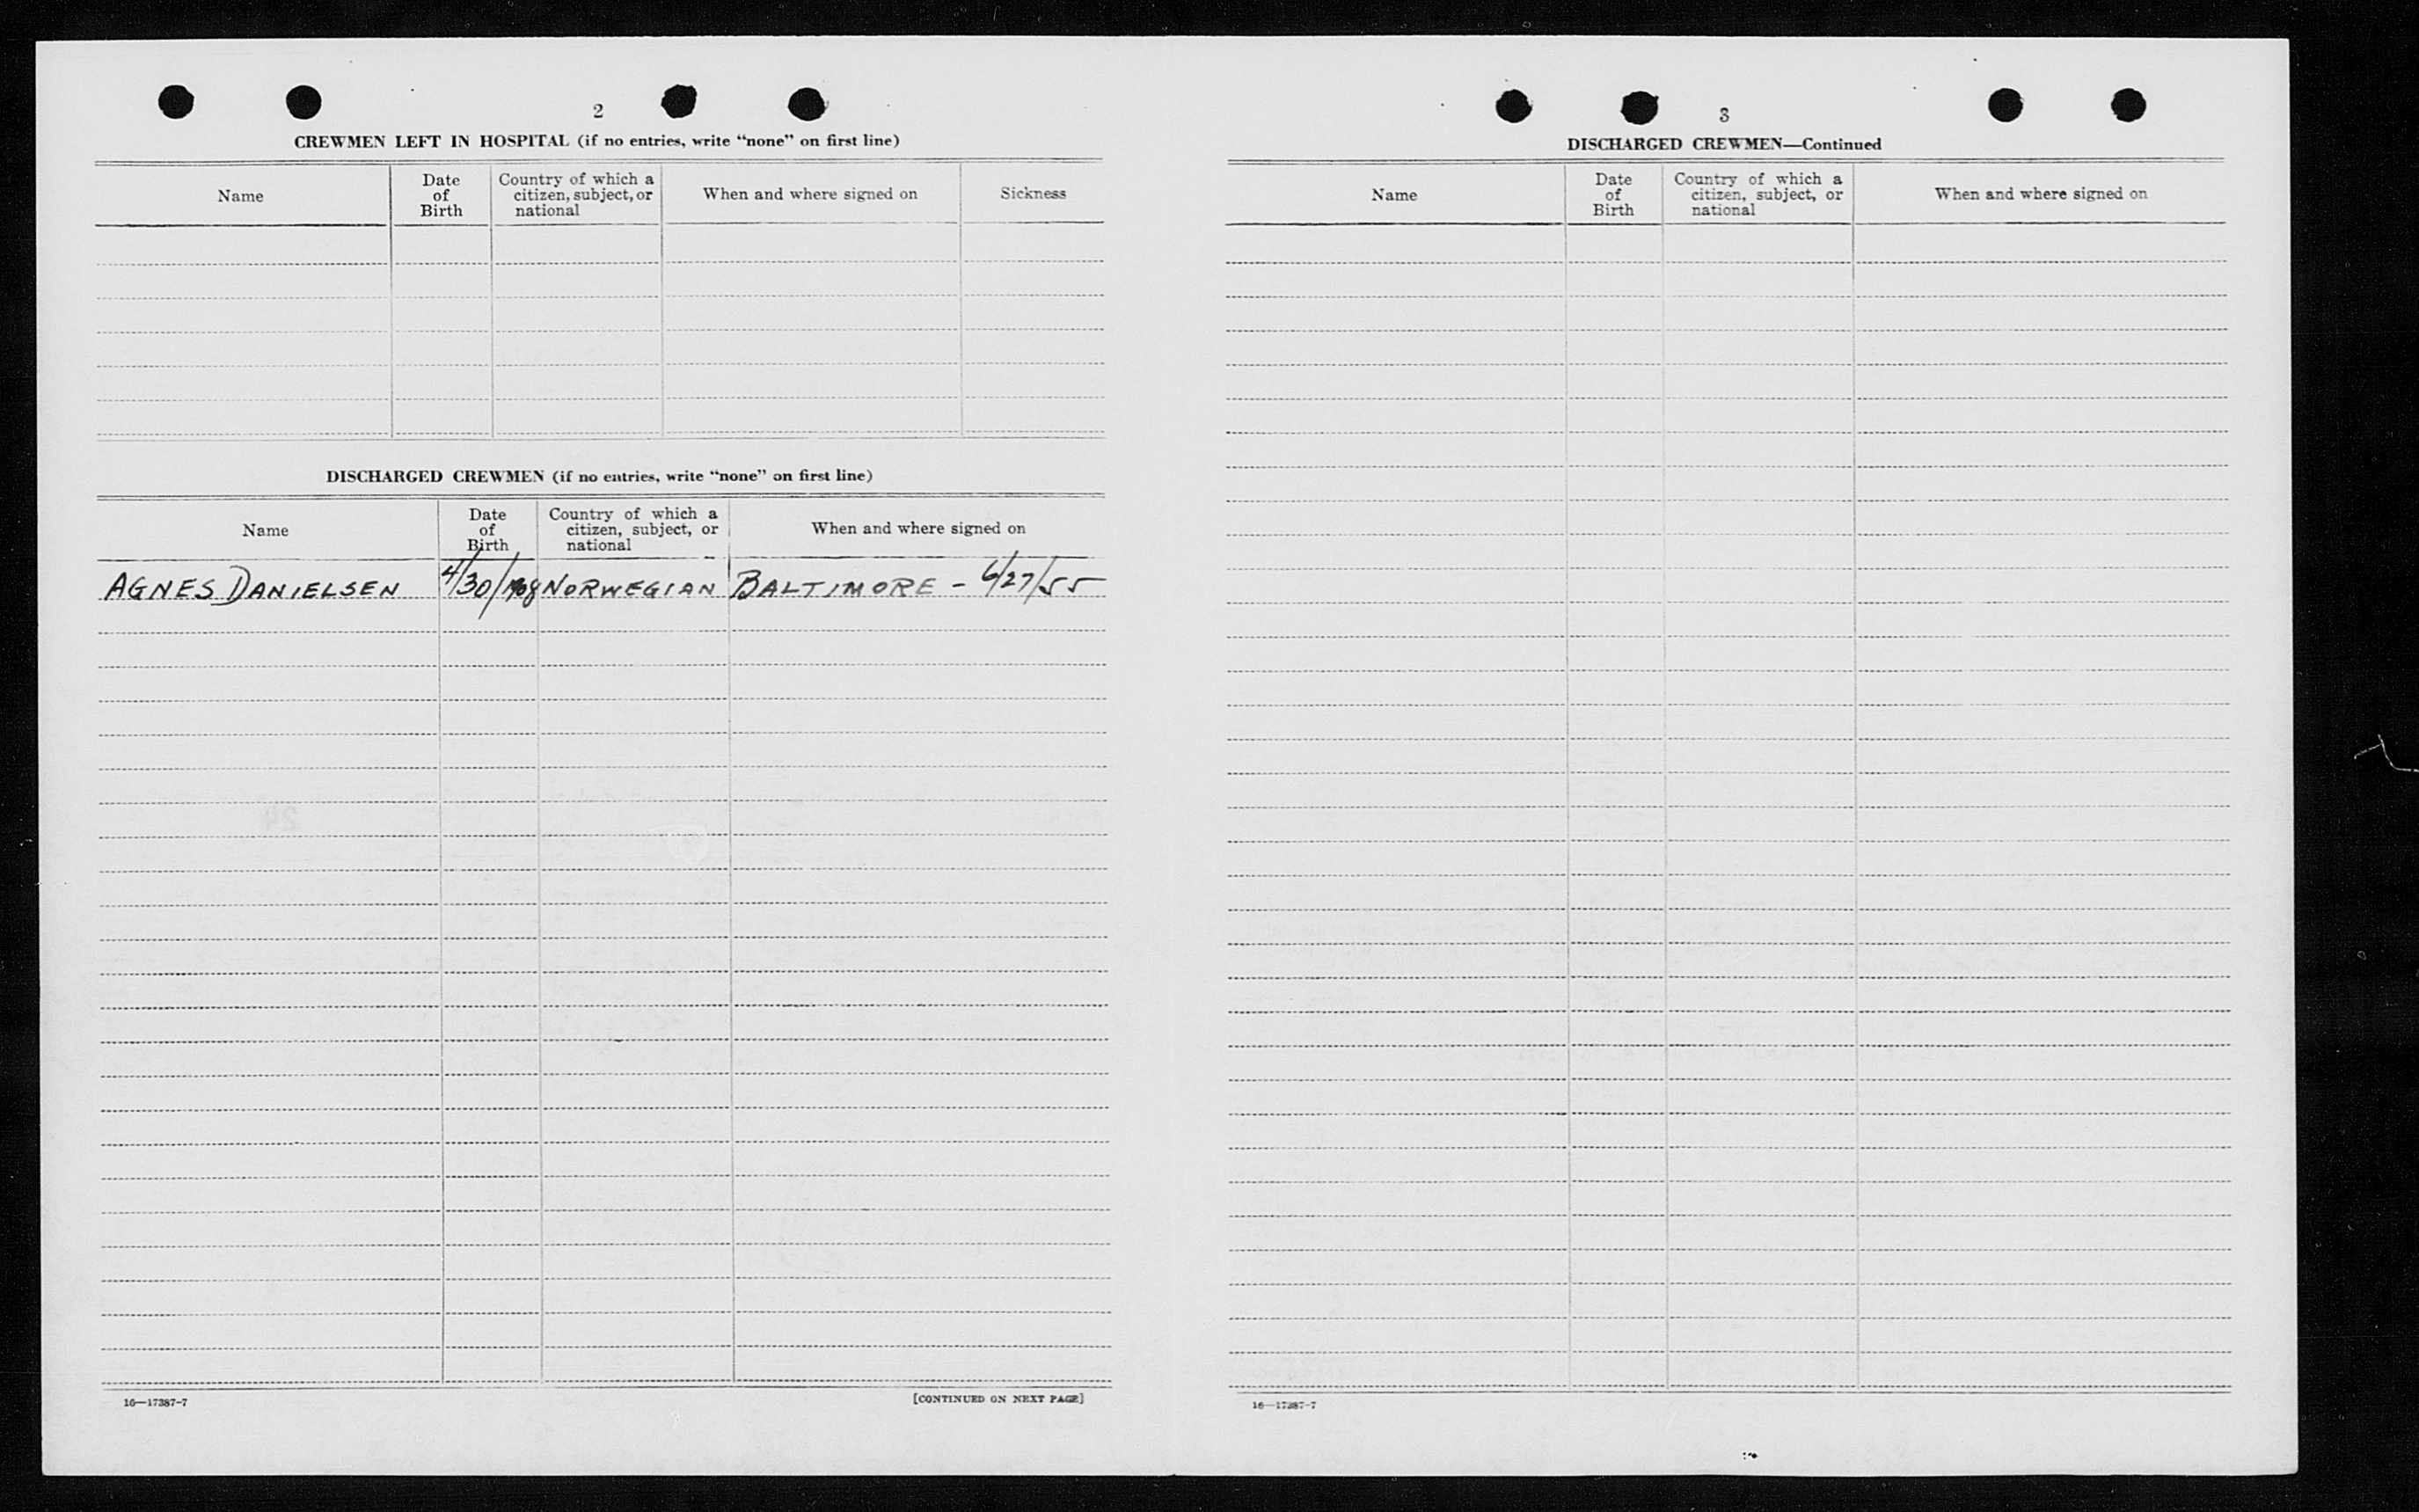 2
CREWMEN LEFT IN HOSPITAL (if no entries, write "none" on first line)
Name
Date of Birth
Country of which a citizen, subject, or national
When and where signed on
Sickness
DISCHARGED CREWMEN (if no entries, write "none" on first line)
Name
Date of Birth
Country of which a citizen, subject, or national
When and where signed on
AGNES DANIELSEN 4/30/1908 NORWEGIAN BALTIMORE - 6/27/55
16—17387-7
[CONTINUED ON NEXT PAGE]
3
DISCHARGED CREWMEN—Continued
Name
Date of Birth
Country of which a citizen, subject, or national
When and where signed on
16—17387-7